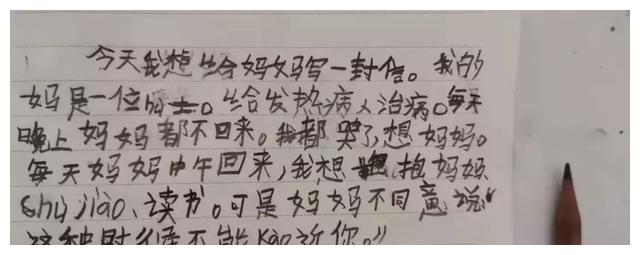 今天我想给妈妈写一封信。我的
妈是一位 士。给发热病人治病。每天
晚上妈妈都不回来。我都哭了,想妈妈。
每天妈妈中午回来,我想 抱妈妈
shuì jiào、读书。可是妈妈不同意说:“
这种时候不能kào近你。”